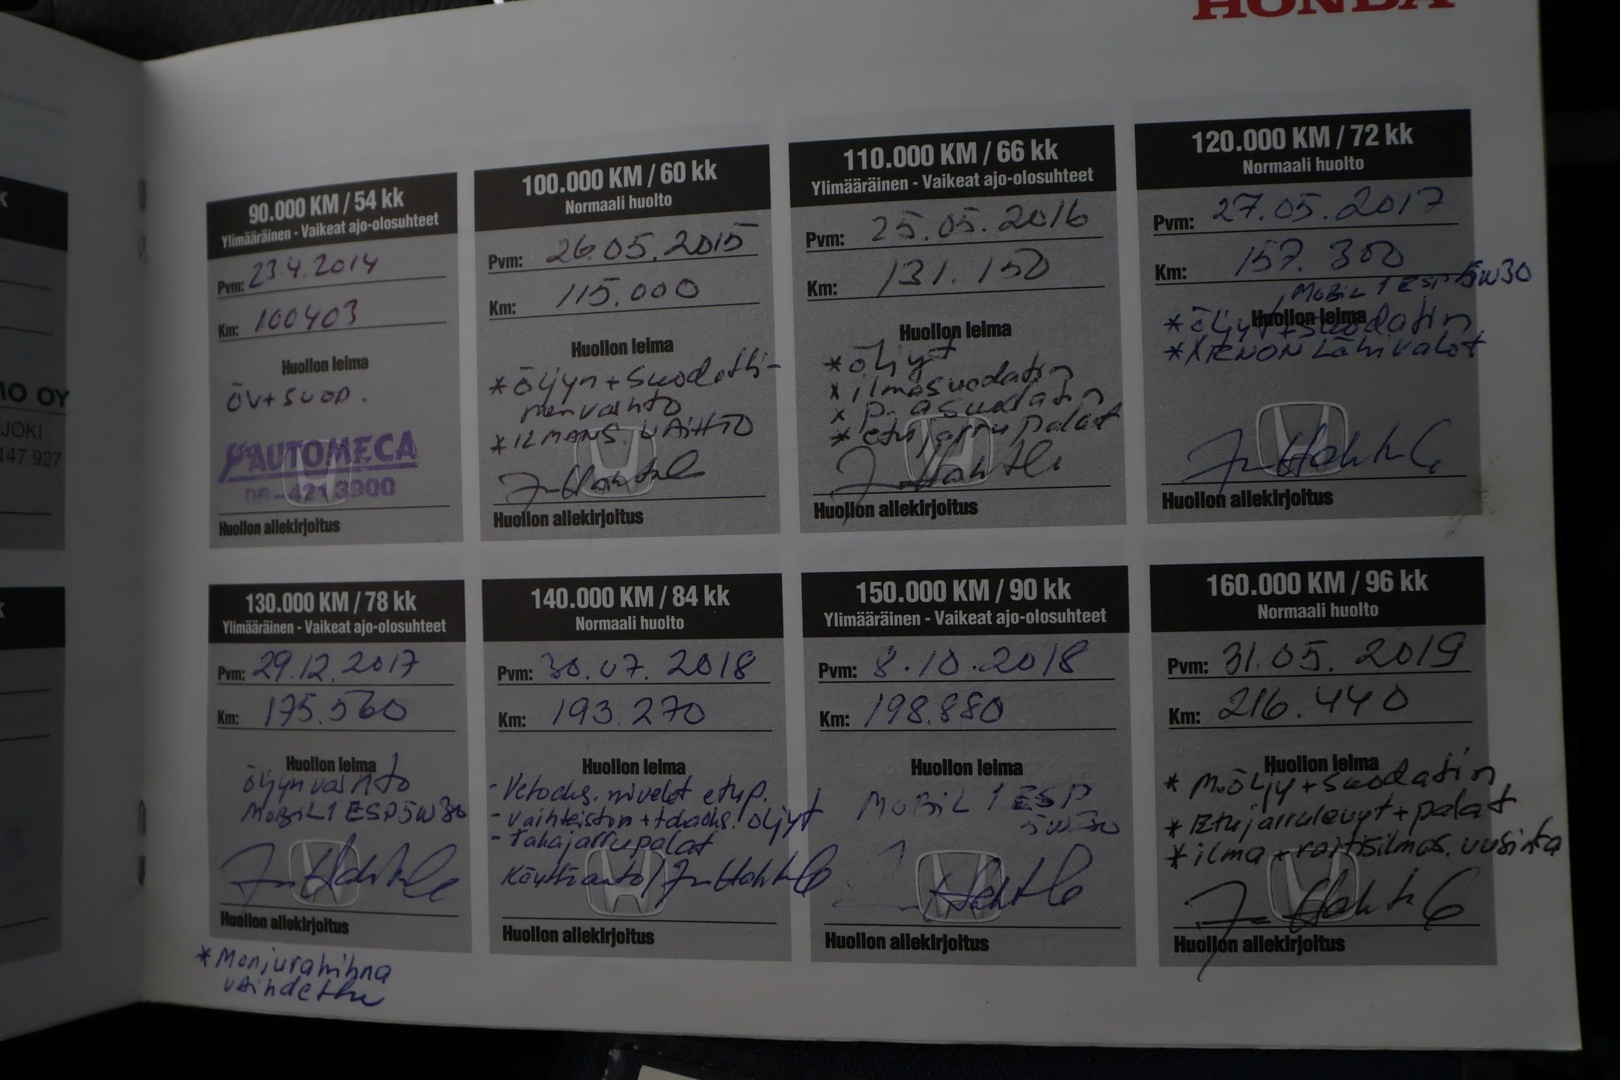 HONDA
MO OY
JOKI
147 927
90.000 KM / 54 kk
Ylimääräinen - Vaikeat ajo-olosuhteet
Pvm: 23.4.2014
Km: 100403
Huollon leima
ÖV+SUOD.
AUTOMECA
06-4213900
Huollon allekirjoitus
100.000 KM / 60 kk
Normaali huolto
Pvm: 26.05.2015
Km: 115.000
Huollon leima
* öljyn + suodatti-
menvaihto
* ILMANS. VAIHTO
Huollon allekirjoitus
110.000 KM / 66 kk
Ylimääräinen - Vaikeat ajo-olosuhteet
Pvm: 25.05.2016
Km: 131.150
Huollon leima
* öljyt
* ilmasuodatin
* p.asuodatin
* etujarrupalat
Huollon allekirjoitus
120.000 KM / 72 kk
Normaali huolto
Pvm: 27.05.2017
Km: 157.300
MOBIL 1 ESP 5W30
Huollon leima
* öljyt + suodatin
* XENON Lähivalot
Huollon allekirjoitus
130.000 KM / 78 kk
Ylimääräinen - Vaikeat ajo-olosuhteet
Pvm: 29.12.2017
Km: 175.560
Huollon leima
öljynvaihto
MOBIL1 ESP 5W30
Huollon allekirjoitus
140.000 KM / 84 kk
Normaali huolto
Pvm: 30.07.2018
Km: 193.270
Huollon leima
- Vetoaks. nivelet etup.
- vaihteiston + öljyt
- Takajarrupalat
Huollon allekirjoitus
150.000 KM / 90 kk
Ylimääräinen - Vaikeat ajo-olosuhteet
Pvm: 8.10.2018
Km: 198.880
Huollon leima
MOBIL 1 ESP
5W30
Huollon allekirjoitus
160.000 KM / 96 kk
Normaali huolto
Pvm: 31.05.2019
Km: 216.440
Huollon leima
* M.öljy + suodatin
* Etujarrulevyt + palat
* ilma + raitisilmas. uusinta
Huollon allekirjoitus
* Monjurahihna
vaihdettu